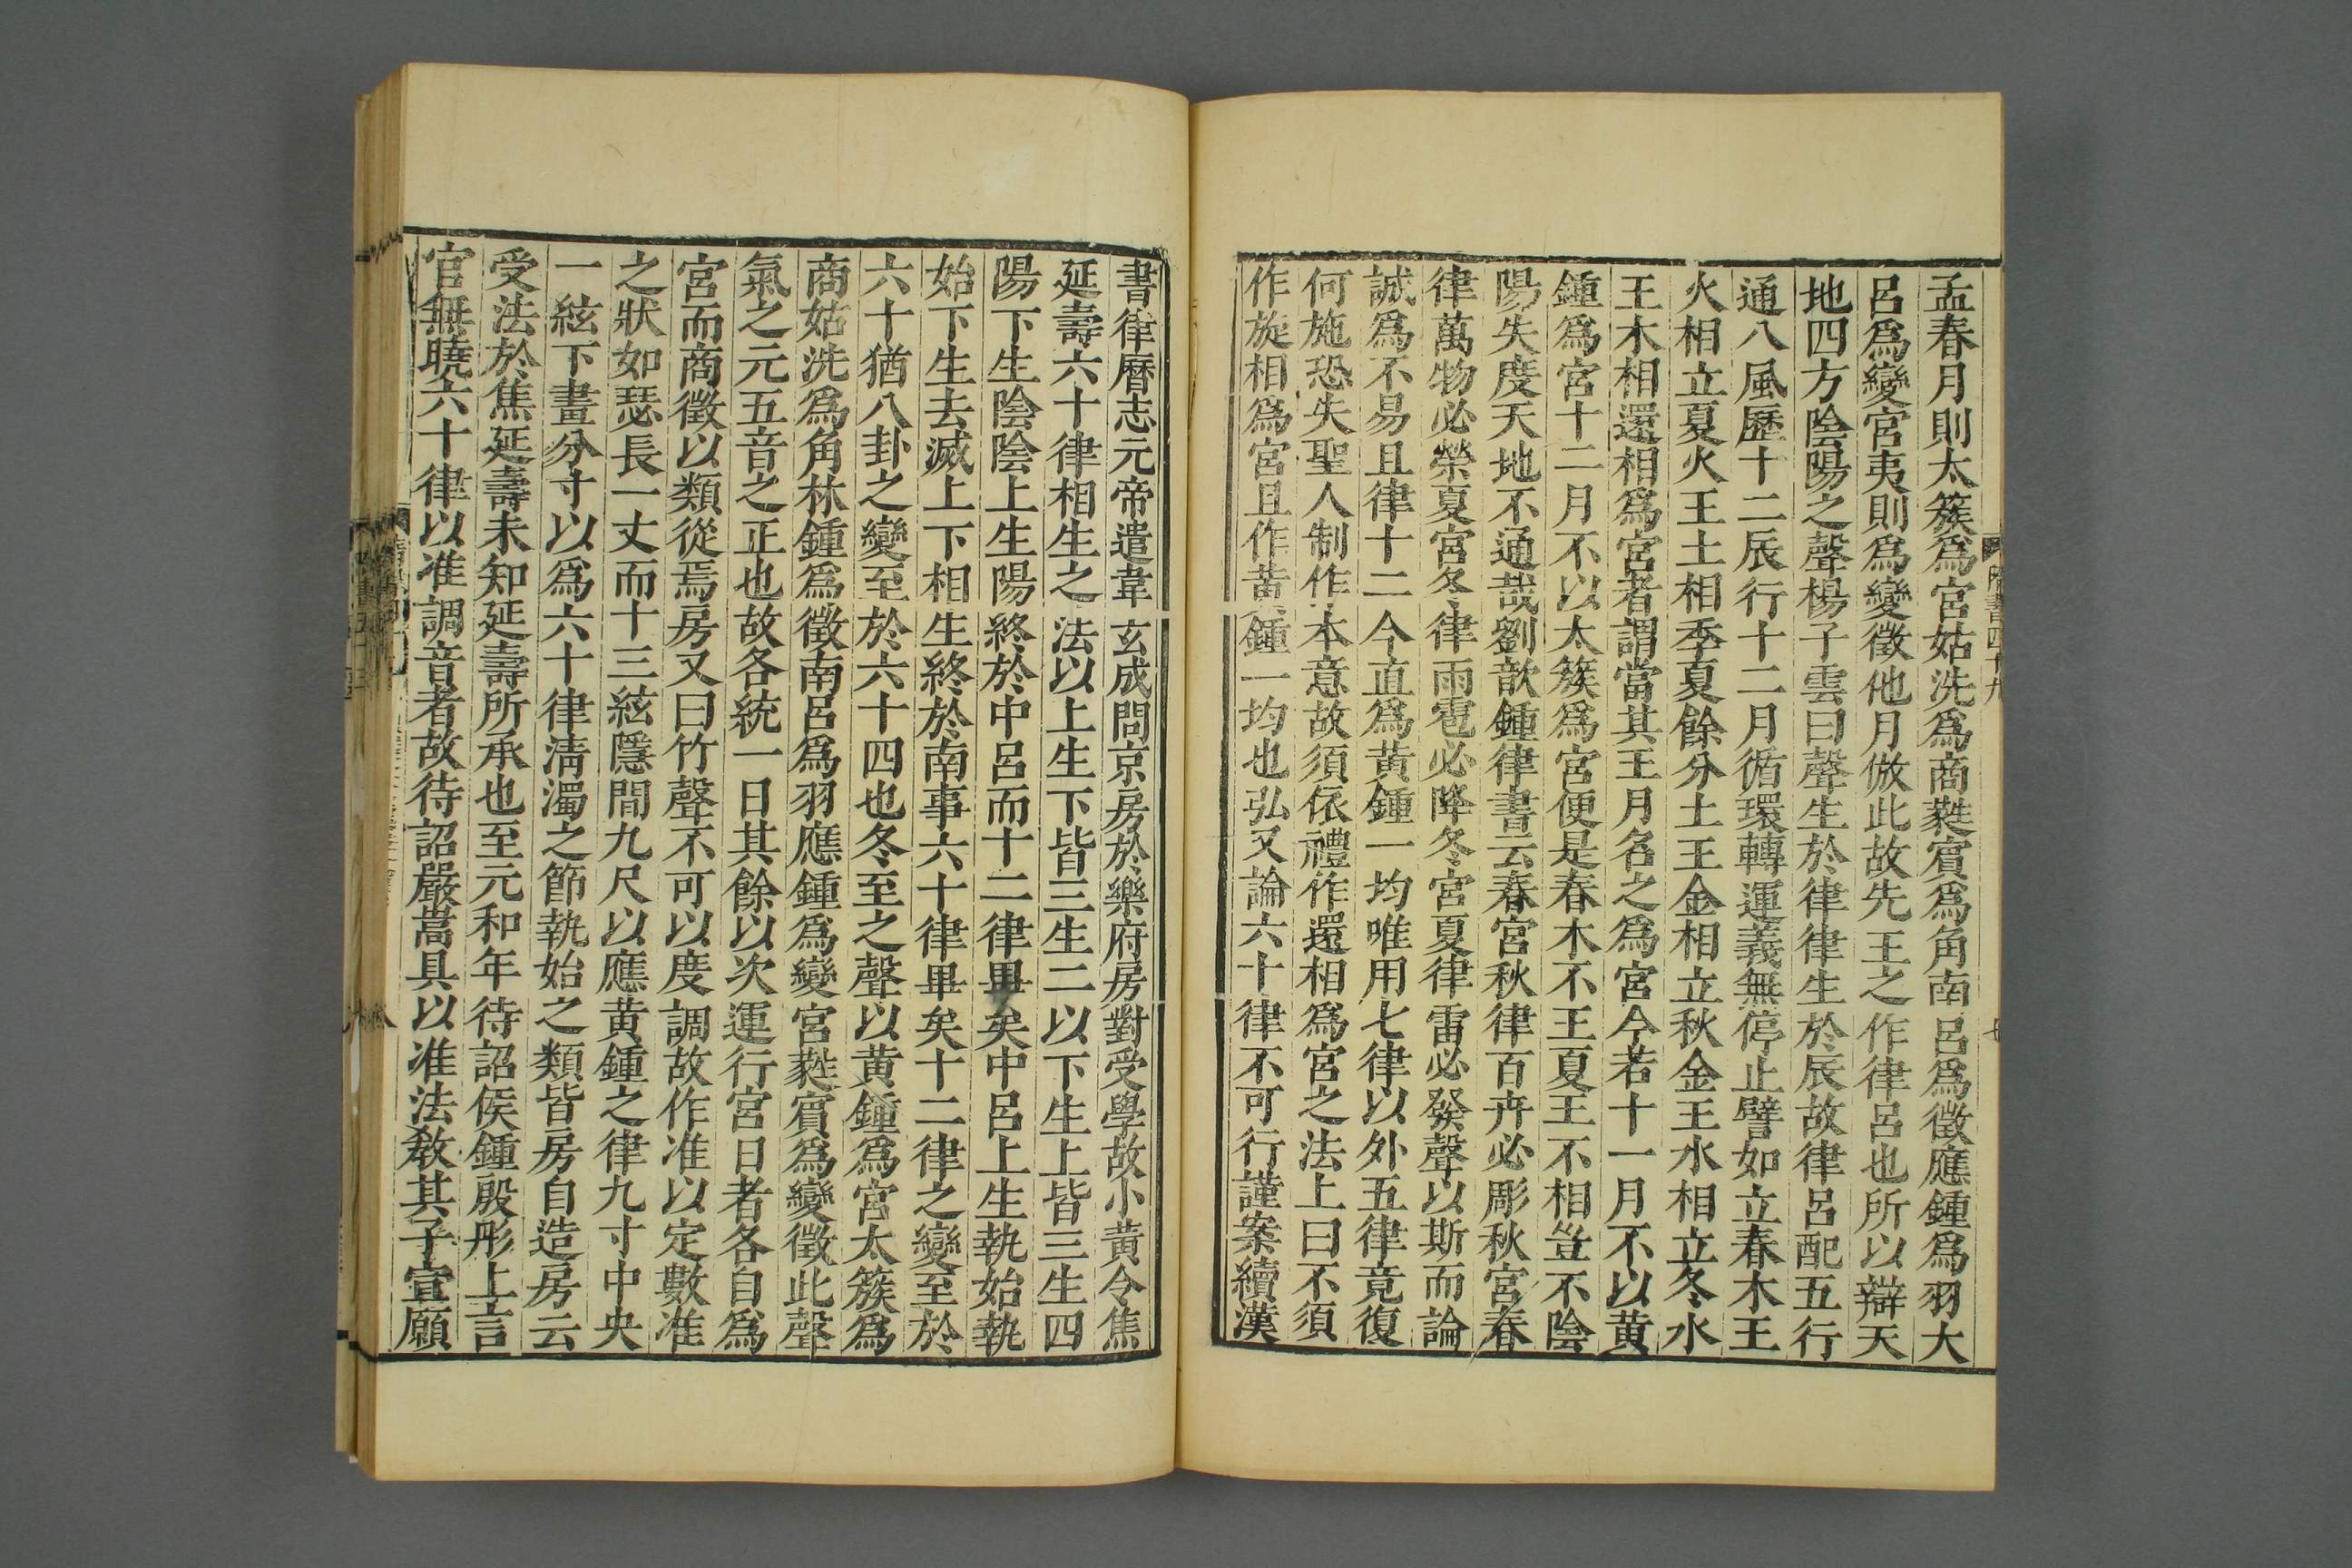 隋書四十九
孟春月則太簇爲宮姑洗爲商蕤賓爲角南呂爲徵應鍾爲羽大
呂爲變宮夷則爲變徵他月倣此故先王之作律呂也所以辯天
地四方陰陽之聲楊子雲曰聲生於律律生於辰故律呂配五行
通八風歷十二辰行十二月循環轉運義無停止譬如立春木王
火相立夏火王土相季夏餘分土王金相立秋金王水相立冬水
王木相還相爲宮者謂當其王月名之爲宮今若十一月不以黃
鍾爲宮十二月不以太簇爲宮便是春木不王夏王不相豈不陰
陽失度天地不通哉劉歆鍾律書云春宮秋律百卉必彫秋宮春
律萬物必榮夏宮冬律雨雹必降冬宮夏律雷必發聲以斯而論
誠爲不易且律十二今直爲黃鍾一均唯用七律以外五律竟復
何施恐失聖人制作本意故須依禮作還相爲宮之法上曰不須
作旋相爲宮且作黃鍾一均也弘又論六十律不可行謹案續漢
書律曆志元帝遣韋玄成問京房於樂府房對受學故小黃令焦
延壽六十律相生之法以上生下皆三生二以下生上皆三生四
陽下生陰陰上生陽終於中呂而十二律畢矣中呂上生執始執
始下生去滅上下相生終於南事六十律畢矣十二律之變至於
六十猶八卦之變至於六十四也冬至之聲以黃鍾爲宮太簇爲
商姑洗爲角林鍾爲徵南呂爲羽應鍾爲變宮蕤賓爲變徵此聲
氣之元五音之正也故各統一日其餘以次運行宮日者各自爲
宮而商徵以類從焉房又曰竹聲不可以度調故作准以定數准
之狀如瑟長一丈而十三絃隱間九尺以應黃鍾之律九寸中央
一絃下畫分寸以爲六十律淸濁之節執始之類皆房自造房云
受法於焦延壽未知延壽所承也至元和年待詔侯鍾殷肜上言
官無曉六十律以准調音者故待詔嚴嵩具以准法敎其子宣願